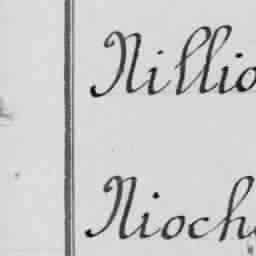 Nillio
Nioch